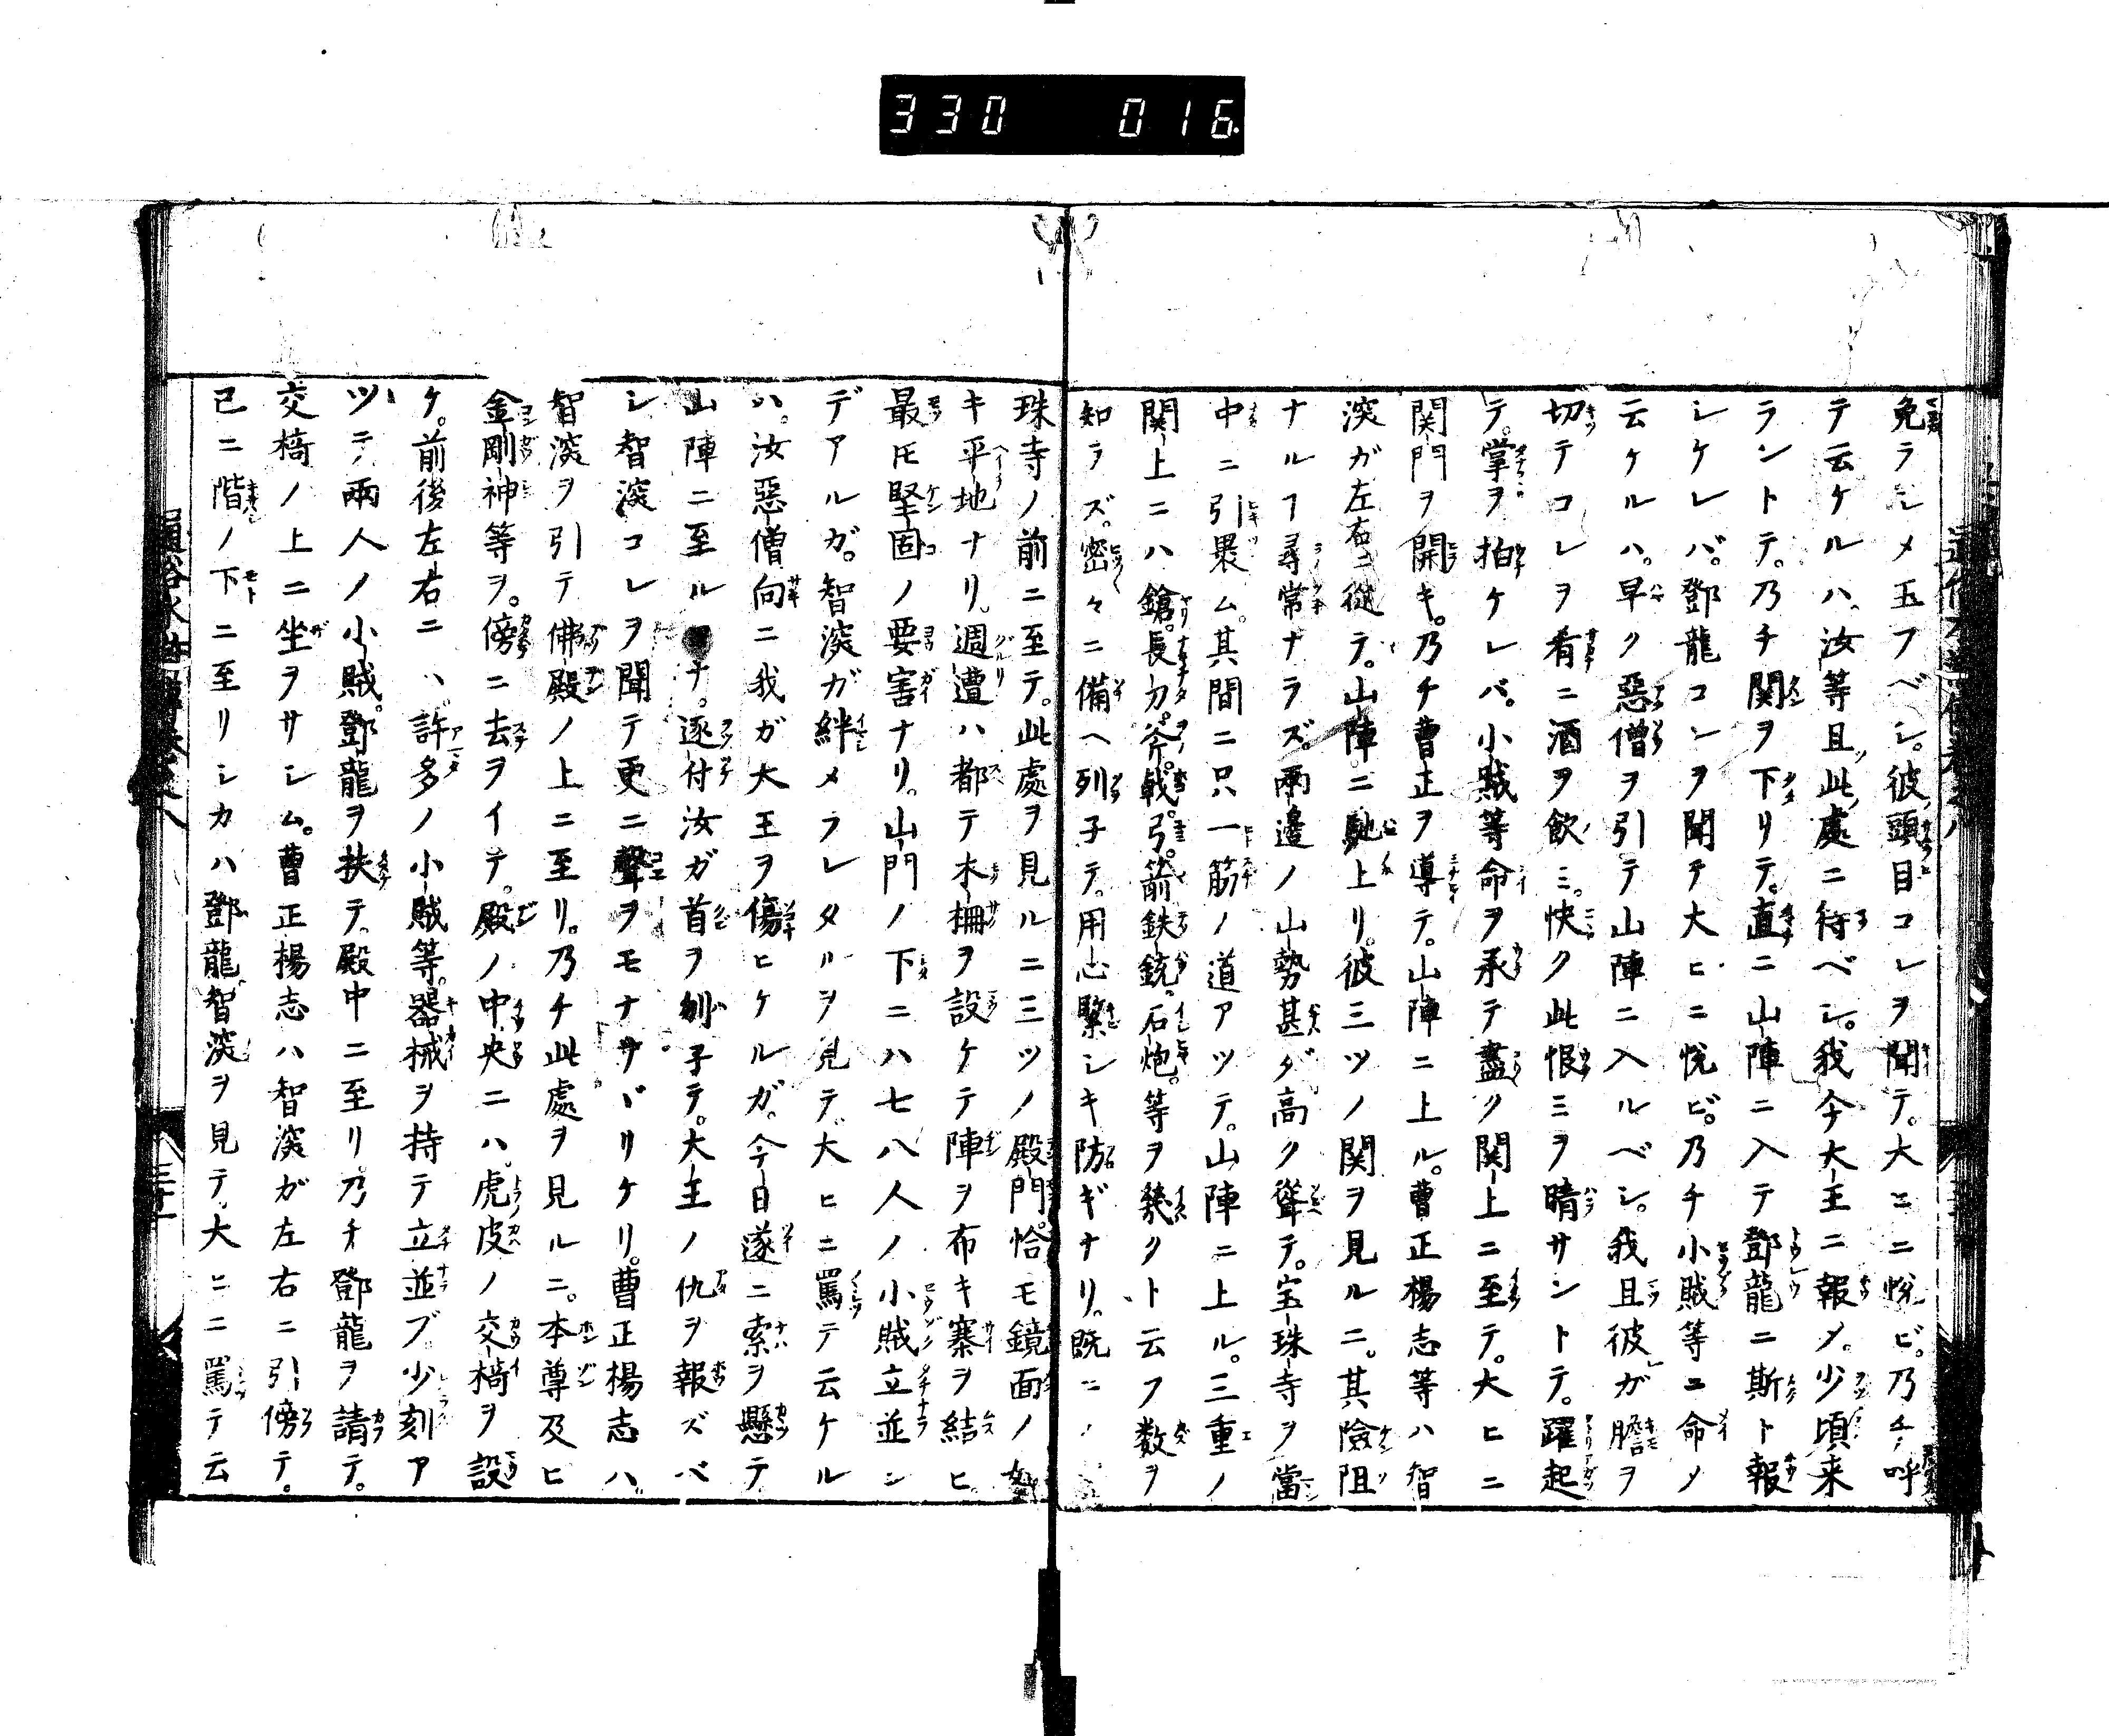 330 016
免ラシメ玉フベシ。彼頭目コレヲ聞テ。大ヒニ悦ビ。乃チ呼
テ云ケルハ。汝等且此處ニ待ベシ。我今大王ニ報メ。少頃来
ラントテ。乃チ関ヲ下リテ。直ニ山陣ニ入テ鄧龍ニ斯ト報
シケレバ。鄧龍コレヲ聞テ大ヒニ悦ビ。乃チ小賊等ニ命メ
云ケルハ。早ク惡僧ヲ引テ山陣ニ入ルベシ。我且彼ガ膽ヲ
切テコレヲ肴ニ酒ヲ飲ミ。快ク此恨ミヲ晴サントテ。躍起
テ。掌ヲ拍ケレバ。小賊等命ヲ承テ盡ク関上ニ至テ。大ヒニ
関門ヲ開キ。乃チ曹正ヲ導テ。山陣ニ上ル。曹正楊志等ハ智
深ガ左右ニ從テ。山陣ニ馳上リ。彼三ツノ関ヲ見ルニ。其險阻
ナルヿ尋常ナラズ。兩邉ノ山勢甚ダ高ク聳テ。宝珠寺ヲ當
中ニ引褁ム。其間ニ只一筋ノ道アツテ。山陣ニ上ル。三重ノ
関上ニハ鎗。長刀。斧。戟。弓。箭鉄銃。石炮。等ヲ幾クト云フ数ヲ
知ラズ。密々ニ備ヘ列子テ。用心緊シキ防ギナリ。既ニ
珠寺ノ前ニ至テ。此處ヲ見ルニ三ツノ殿門。恰モ鏡面ノ如
キ平地ナリ。週遭ハ都テ木柵ヲ設ケテ陣ヲ布キ寨ヲ結ヒ。
最モ堅固ノ要害ナリ。山門ノ下ニハ七八人ノ小賊立並ン
デアルガ。智深ガ絆メラレタルヲ見テ。大ヒニ罵テ云ケル
ハ。汝惡僧向ニ我ガ大王ヲ傷ヒケルガ。今日遂ニ索ヲ懸テ
山陣ニ至ル ナ。逐付汝ガ首ヲ刎子テ。大王ノ仇ヲ報ズベ
シ智深コレヲ聞テ更ニ聲ヲモナサヾリケリ。曹正楊志ハ。
智深ヲ引テ佛殿ノ上ニ至リ。乃チ此處ヲ見ルニ。本尊及ヒ
金剛神等ヲ。傍ニ去ヲイテ。殿ノ中央ニハ。虎皮ノ交椅ヲ設
ケ。前後左右ニハ。許多ノ小賊等。器械ヲ持テ立並ブ。少刻ア
ツテ兩人ノ小賊。鄧龍ヲ扶テ。殿中ニ至リ。乃チ鄧龍ヲ請テ。
交椅ノ上ニ坐ヲサシム。曹正楊志ハ智深ガ左右ニ引傍テ。
已ニ階ノ下ニ至リシカハ鄧龍智深ヲ見テ。大ヒニ罵テ云